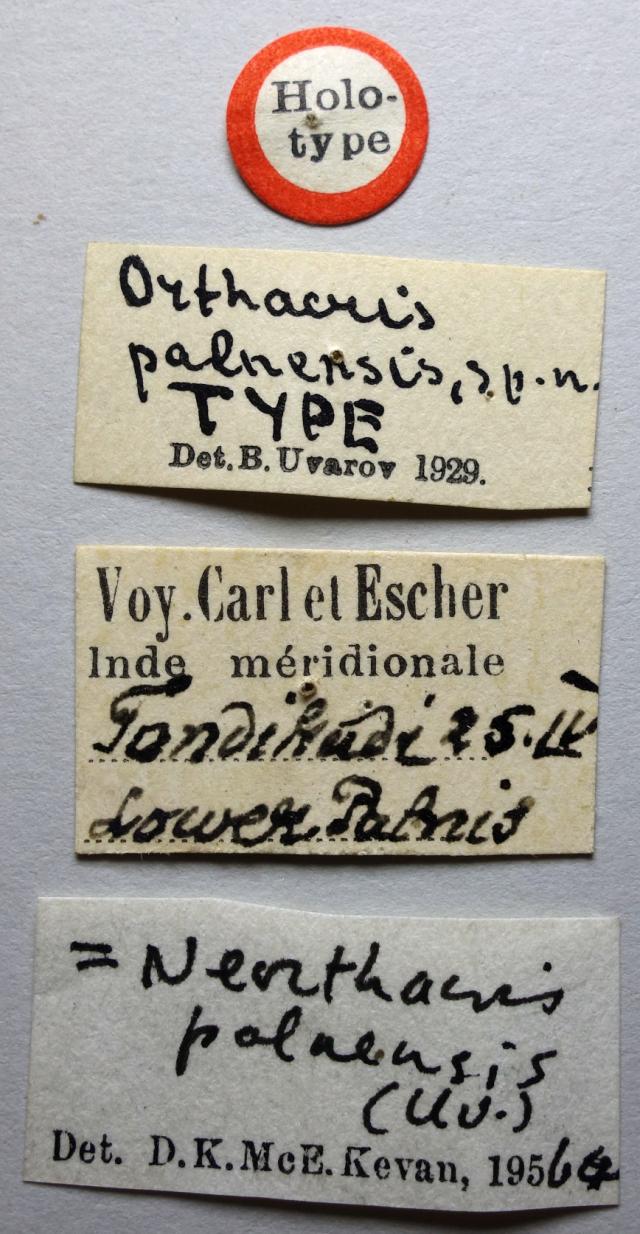 Holo-
type
Orthacris
palnensis, sp. n.
TYPE
Det. B. Uvarov 1929.
Voy. Carl et Escher
Inde méridionale
Tandikudi 25.IV
Lower Palnis
= Neorthacris
palnensis
(Uv.)
Det. D. K. McE. Kevan,